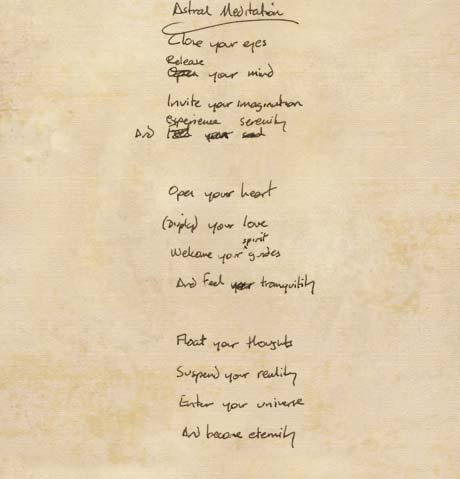 Astral Meditation
Close your eyes
Release
Open your mind
Invite your imagination
Experience serenity
And Feel your soul
Open your heart
(Display) your love
spirit
Welcome your guides
And Feel your tranquility
Float your thoughts
Suspend your reality
Enter your universe
And become eternity